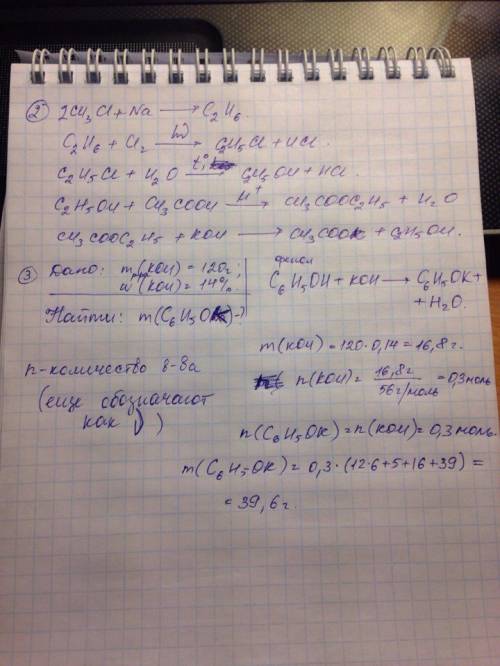 ② 2CH₃Cl + Na ⟶ C₂H₆
C₂H₆ + Cl₂ ⟶(hν) C₂H₅Cl + HCl.
C₂H₅Cl + H₂O ⟶(t°) C₂H₅OH + HCl
C₂H₅OH + CH₃COOH ⟶(H⁺) CH₃COOC₂H₅ + H₂O
CH₃COOC₂H₅ + KOH ⟶ CH₃COOK + C₂H₅OH.
③ Дано: mр-ра(KOH) = 120г;
w(KOH) = 14%
Найти: m(C₆H₅OK)-?
фенол
C₆H₅OH + KOH ⟶ C₆H₅OK +
+ H₂O.
m(KOH) = 120·0,14 = 16,8г.
n-количество в-ва
(еще обозначают
как ν)
n(KOH) = 16,8г / 56г/моль = 0,3моль
n(C₆H₅OK) = n(KOH) = 0,3моль.
m(C₆H₅OK) = 0,3·(12·6+5+16+39) =
= 39,6г.